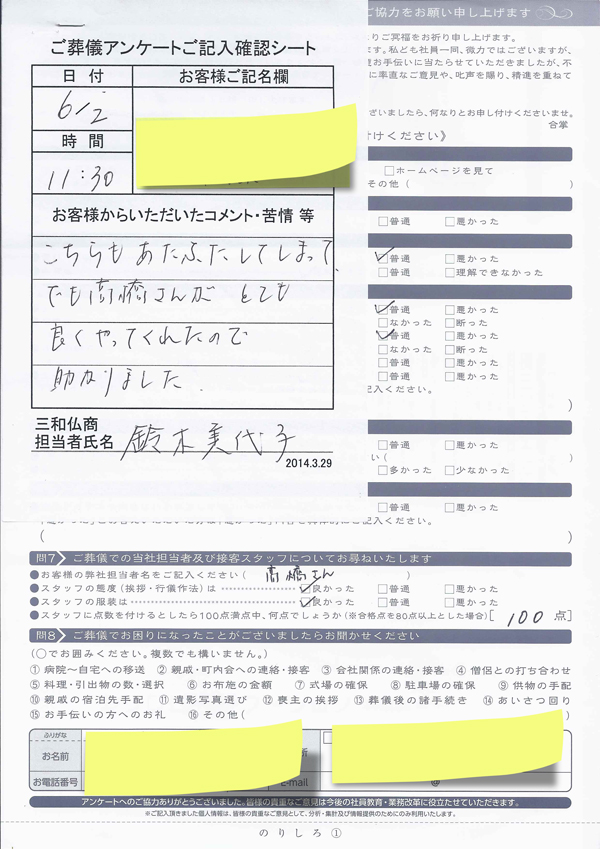 ご協力をお願い申し上げます
りご冥福をお祈り申し上げます。
ます。私ども社員一同、微力ではございますが、
お手伝いに当たらせていただきましたが、不
に率直なご意見や、叱声を賜り、精進を重ねて
ざいましたら、何なりとお申し付けくださいませ。
合掌
付けください》
ご葬儀アンケートご記入確認シート
日付 お客様ご記名欄
6/2
時間
11:30
お客様からいただいたコメント・苦情 等
こちらもあたふたしてしまって、
でも高橋さんが とても
良くやってくれたので
助かりました.
三和仏商
担当者氏名 鈴木美代子
2014.3.29
□ホームページを見て
その他( )
□普通 □悪かった
☑普通 □悪かった
□普通 □理解できなかった
☑普通 □悪かった
□なかった □断った
☑普通 □悪かった
□なかった □断った
□普通 □悪かった
□普通 □悪かった
記入ください。
)
□普通 □悪かった
い( )
□多かった □少なかった
□普通 □悪かった
( )
問7 ご葬儀での当社担当者及び接客スタッフについてお尋ねいたします
●お客様の弊社担当者名をご記入ください( 高橋さん )
●スタッフの態度(挨拶・行儀作法)は ☑良かった □普通 □悪かった
●スタッフの服装は ☑良かった □普通 □悪かった
●スタッフに点数を付けるとしたら100点満点中、何点でしょうか(※合格点を80点以上とした場合)[ 100 点]
問8 ご葬儀でお困りになったことがございましたらお聞かせください
(○でお囲みください。複数でも構いません。)
①病院〜自宅への移送 ②親戚・町内会への連絡・接客 ③会社関係の連絡・接客 ④僧侶との打ち合わせ
⑤料理・引出物の数・選択 ⑥お布施の金額 ⑦式場の確保 ⑧駐車場の確保 ⑨供物の手配
⑩親戚の宿泊先手配 ⑪遺影写真選び ⑫喪主の挨拶 ⑬葬儀後の諸手続き ⑭あいさつ回り
⑮お手伝いの方へのお礼 ⑯その他( )
ふりがな
お名前 所
お電話番号 E-mail @
アンケートへのご協力ありがとうございました。皆様の貴重なご意見は今後の社員教育・業務改革に役立たせていただきます。
※ご記入頂きました個人情報は、皆様の貴重なご意見として、分析・集計及び情報提供のためにのみ利用いたします。
のりしろ①